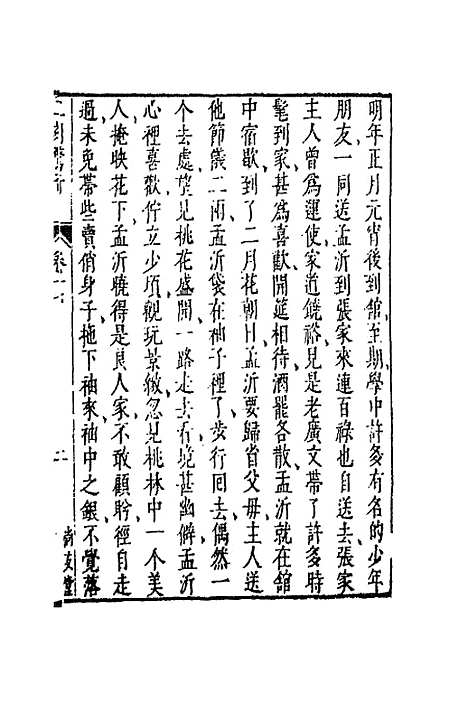 明年正月元宵後到館至期學中許多有名的少年
朋友一同送孟沂到張家來連百祿也自送去張家
主人曾爲運使家道饒裕見是老廣文帶了許多時
髦到家甚爲喜歡開筵相待酒罷各散孟沂就在館
中宿歇到了二月花朝日孟沂要歸省父母主人送
他節儀二兩孟沂袋在袖子裡了步行回去偶然一
个去處望見桃花盛開一路走去看境甚幽僻孟沂
心裡喜歡佇立少頃觀玩景緻忽見桃林中一个美
人掩映花下孟沂曉得是良人家不敢顧盻徑自走
過未免帶些賣俏身子拖下袖來袖中之銀不覺落
二刻驚奇
卷十七
二
尚友堂